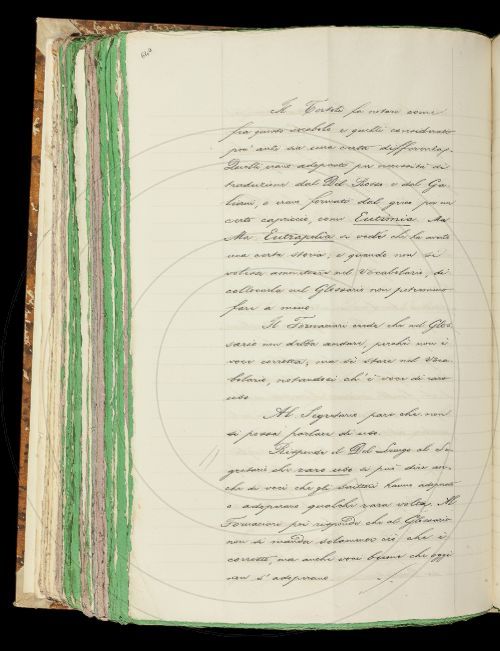 Il Tortoli fa notare come
fra questo vocabolo e quelli considerati
poc' anzi sia una certa differenza.
Quelli erano adoperati per necessità di
traduzione dal Del Rosso e dal Ga-
liani, e erano formati dal greco per un
certo capriccio, come Eutimia. Ma
Ma Eutrapelia si vede che ha avuto
una certa storia; e quando non si
volesse ammettere nel Vocabolario, di
collocarla nel Glossario non potremmo
fare a meno.
Il Fornaciari crede che nel Glos-
sario non debba andare, perchè non è
voce corrotta, ma di stare nel Voca-
bolario, notandosi ch' è voce di raro
uso.
Al Segretario pare che non
si possa parlare di uso.
Risponde il Del Lungo al Se-
gretario che raro uso si può dire an-
che di voci che gli scrittori hanno adoperato
o adoperano qualche rara volta. Al
Fornaciari poi risponde che al Glossario
non si manda solamente ciò che è
corrotto, ma anche voci buone che oggi
non s' adoperano.